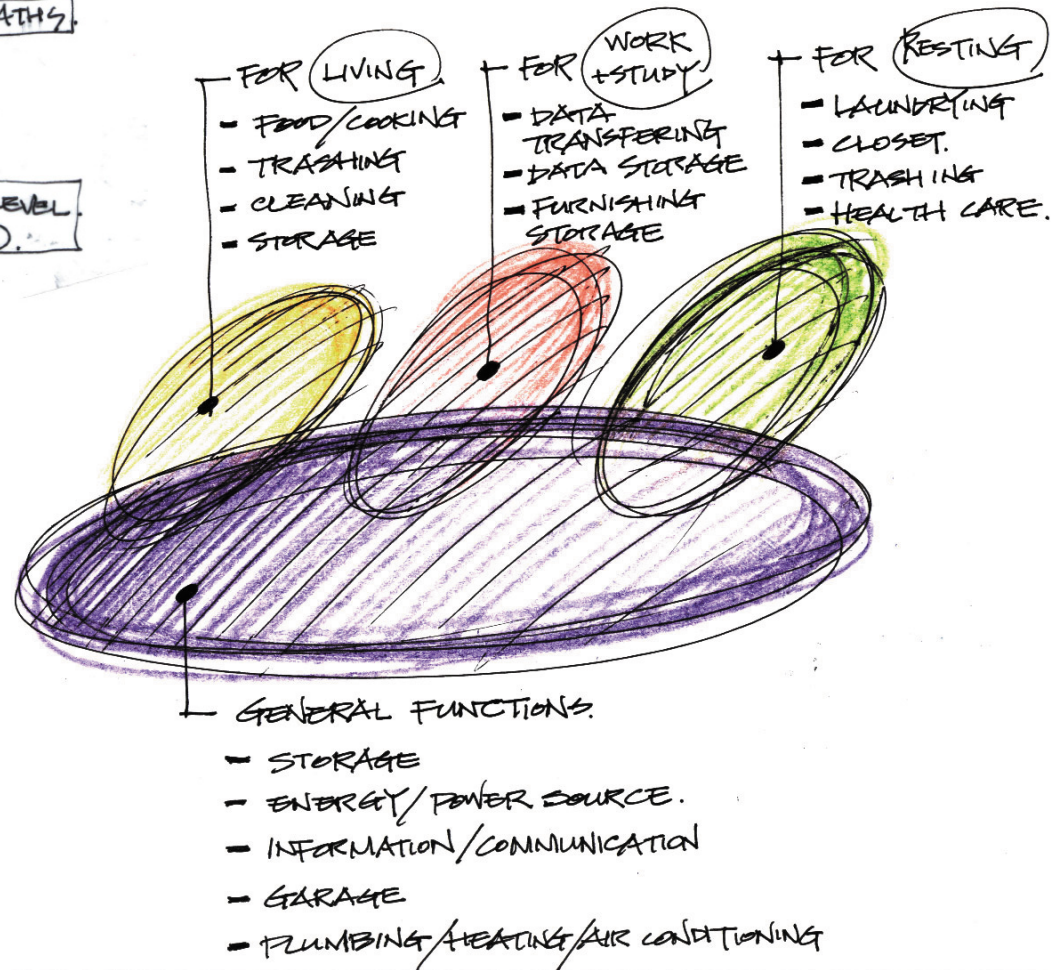 ATHS.
EVEL.
FOR LIVING.
- FOOD/COOKING
- TRASHING
- CLEANING
- STORAGE
FOR WORK
+STUDY.
- DATA
TRANSFERING
- DATA STORAGE
- FURNISHING
STORAGE
FOR RESTING
- LAUNDRYING
- CLOSET.
- TRASHING
- HEALTH CARE.
GENERAL FUNCTIONS.
- STORAGE
- ENERGY/POWER SOURCE.
- INFORMATION/COMMUNICATION
- GARAGE
- PLUMBING/HEATING/AIR CONDITIONING